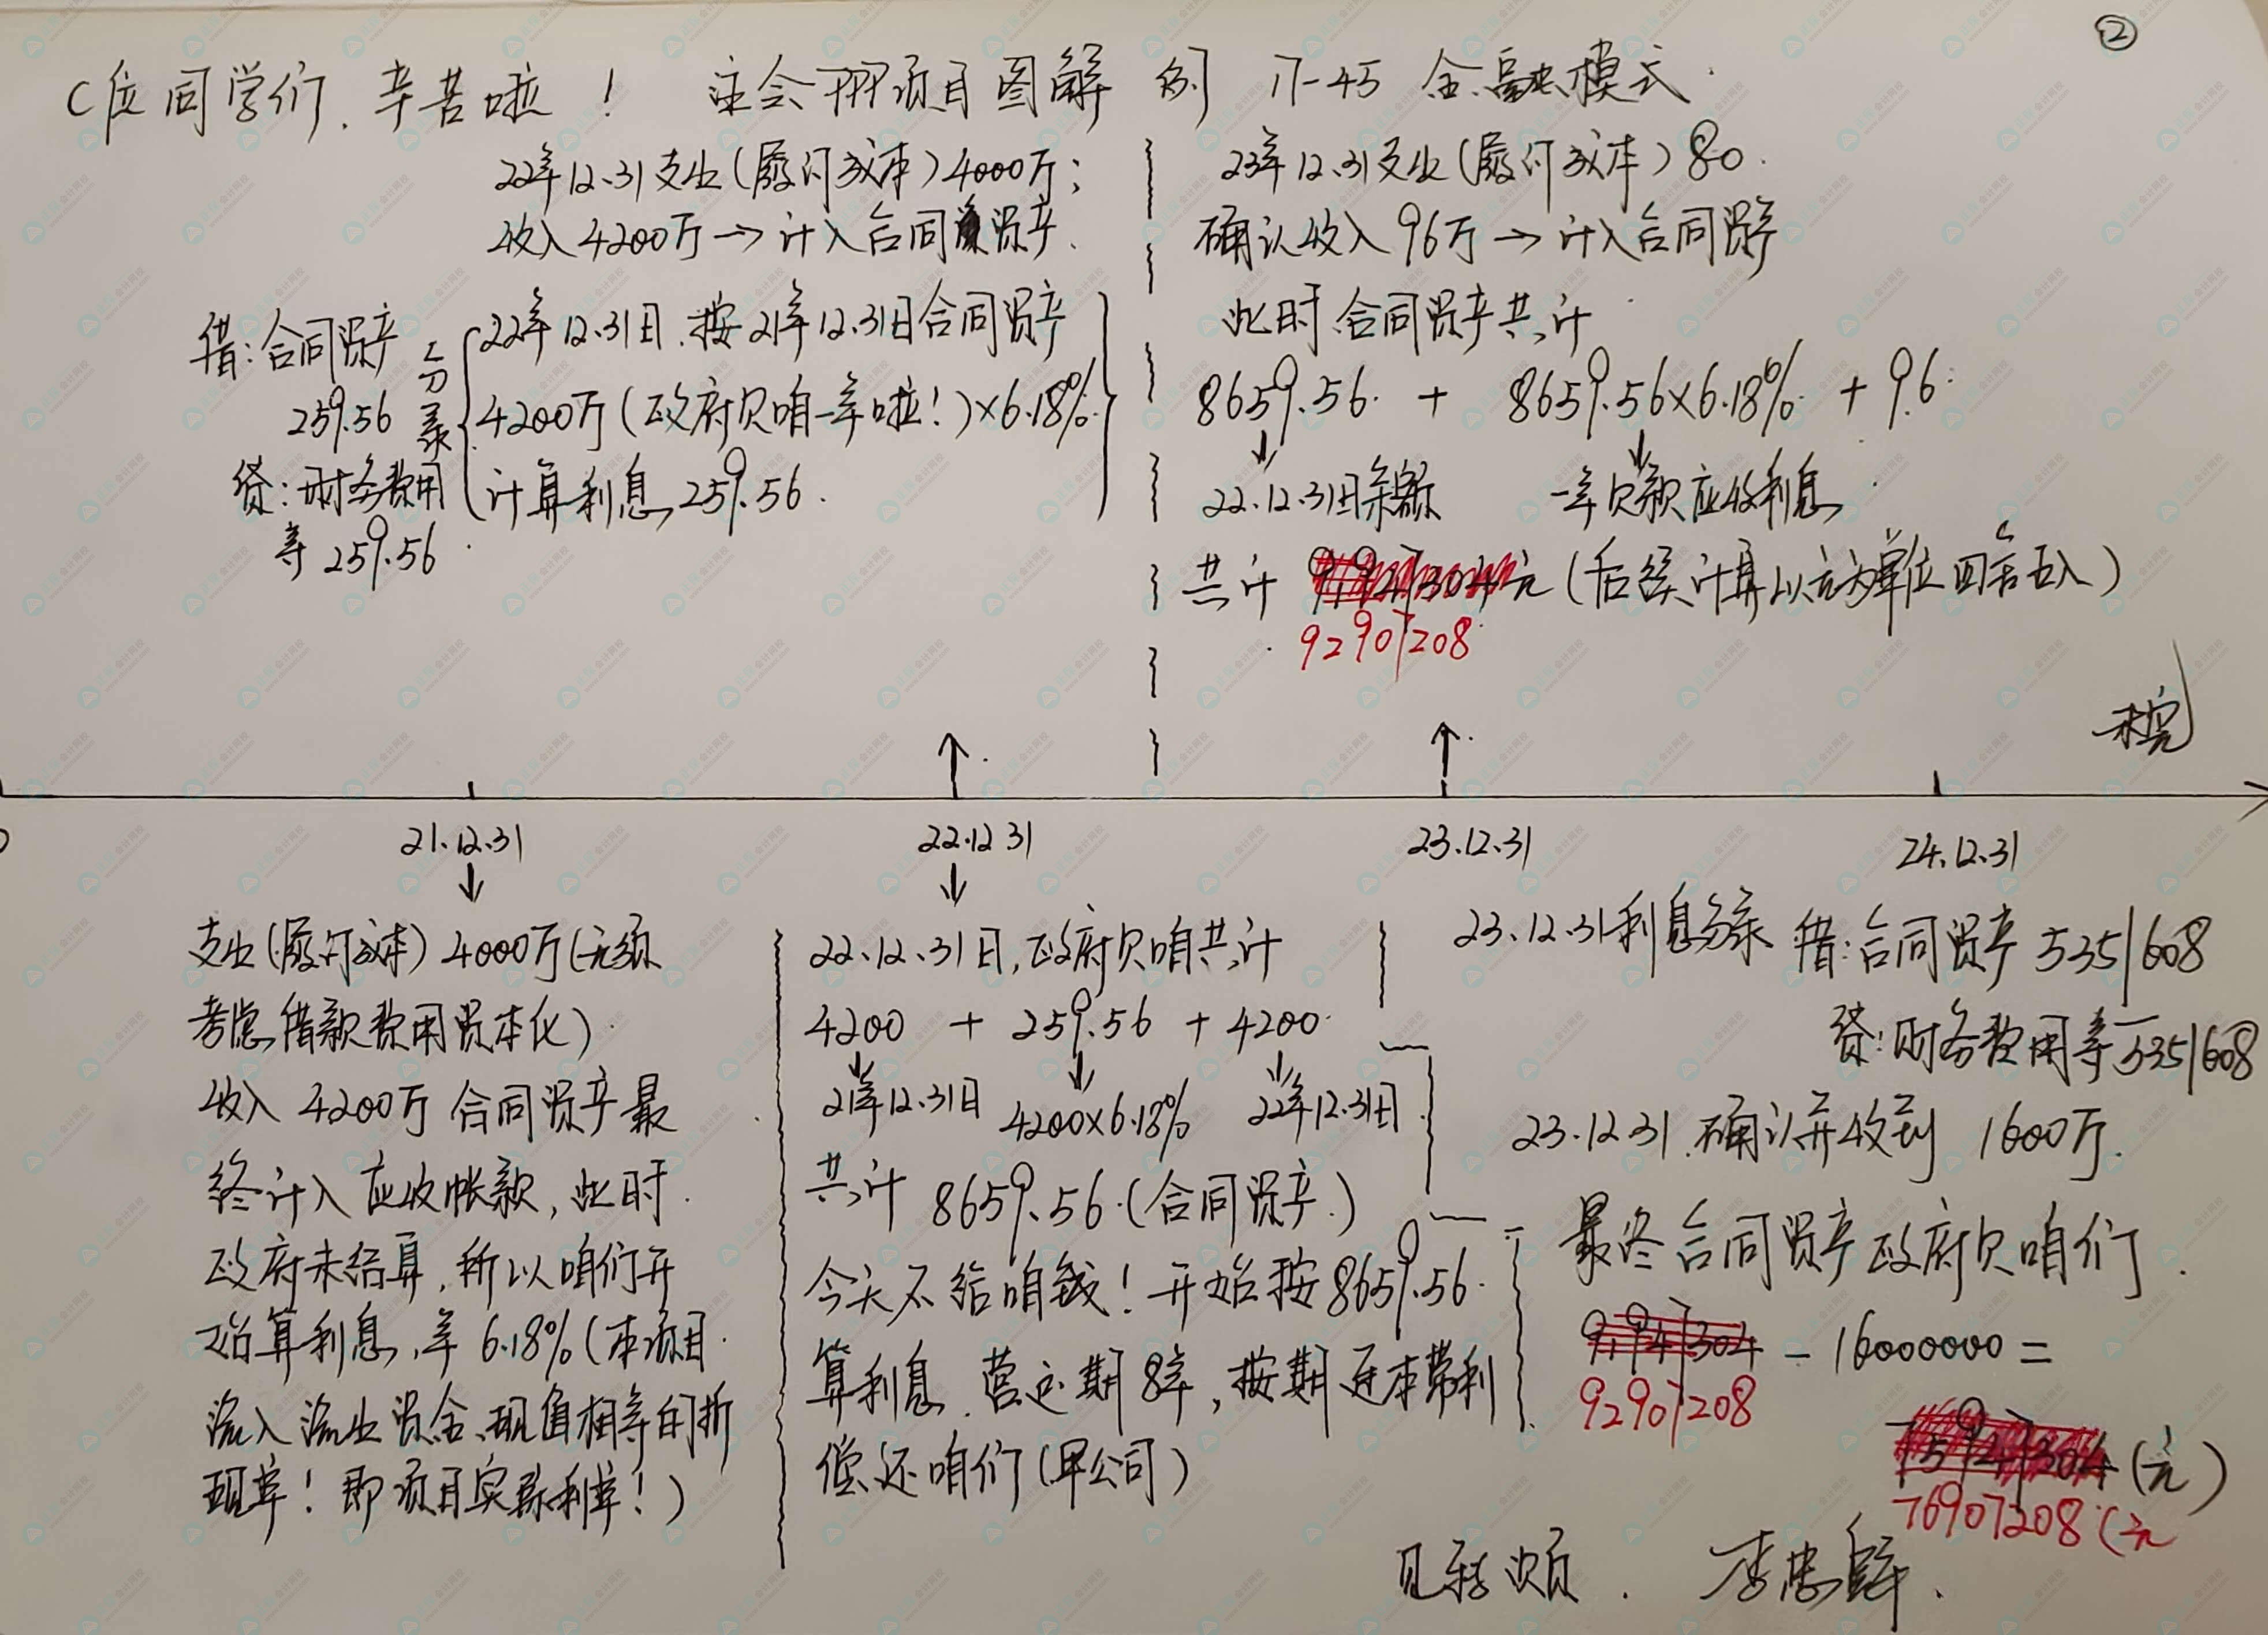 ②
C位同学们、辛苦啦! 注会PPP项目图解 例 17-45 金融模式.
22年12.31支出(履行成本)4000万;
收入4200万→计入合同资产.
借:合同资产
259.56
贷:财务费用
等 259.56
分录
22年12.31日.按21年12.31日合同资产
4200万(政府欠咱一年啦!)×6.18%
计算利息259.56.
23年12.31支出(履行成本)80.
确认收入96万→计入合同资产
此时合同资产共计
8659.56 + 8659.56×6.18% + 96
↓ ↓
22.12.31日余额 一年欠款应收利息
共计 元(后续计算以元为单位四舍五入)
92907208
未完
21.12.31 22.12.31 23.12.31 24.12.31
支出(履行成本)4000万(无须
考虑借款费用资本化)
收入 4200万 合同资产最
终计入应收帐款,此时
政府未结算,所以咱们开
始算利息,率6.18%(本项目
流入流出资金现值相等的折
现率!即项目实际利率!)
22.12.31日,政府欠咱共计
4200 + 259.56 + 4200
↓ ↓ ↓
21年12.31日 4200×6.18% 22年12.31日
共计 8659.56(合同资产)
今天不给咱钱!开始按8659.56
算利息.营运期8年,按期连本带利
偿还咱们(甲公司)
23.12.31利息分录 借:合同资产 5351608
贷:财务费用等 5351608
23.12.31.确认并收到 1600万.
最终合同资产政府欠咱们.
92907208 - 16000000 =
(元)
76907208(元